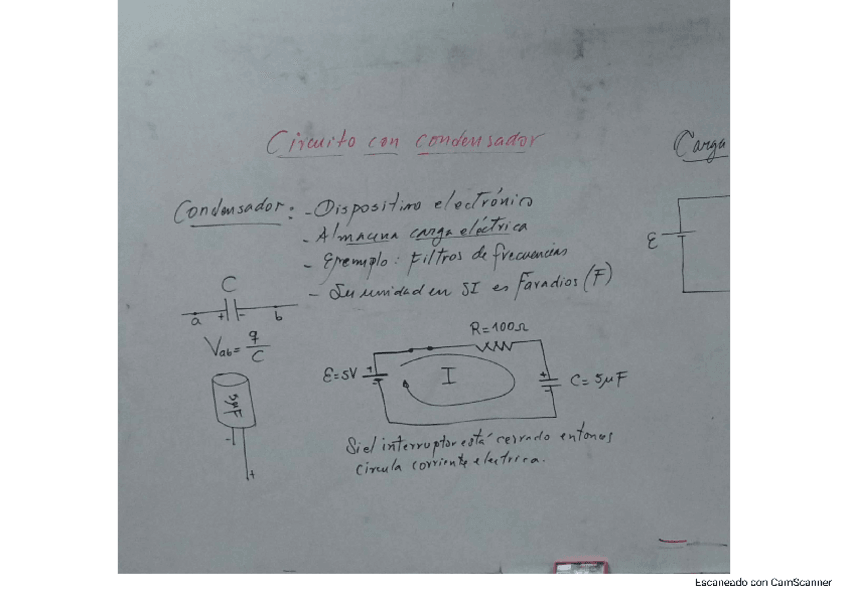 Circuito con condensador
Carga
Condensador: - Dispositivo electrónico
- Almacena carga eléctrica
- Ejemplo: Filtros de frecuencias
- Su unidad en SI es Faradios (F)
C
a + - b
Vab = q/C
5μF
- +
R=100Ω
ε=5V
I
C=5μF
ε
Si el interruptor está cerrado entonces
circula corriente electrica.
Escaneado con CamScanner